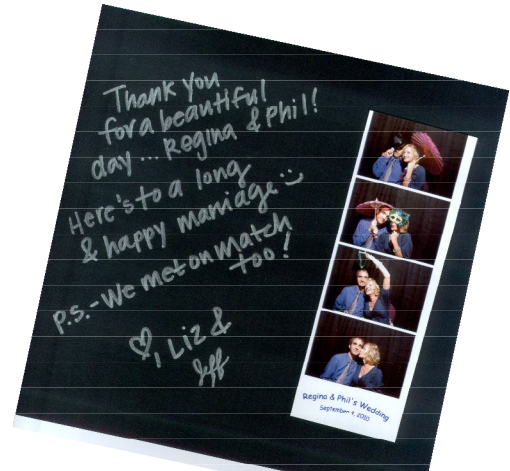 Thank you
for a beautiful
day ... Regina & Phil!
Here's to a long
& happy marriage :)
P.S. - We met on Match
too!
♡, Liz &
Jeff
Regina & Phil's Wedding
September 4, 2010